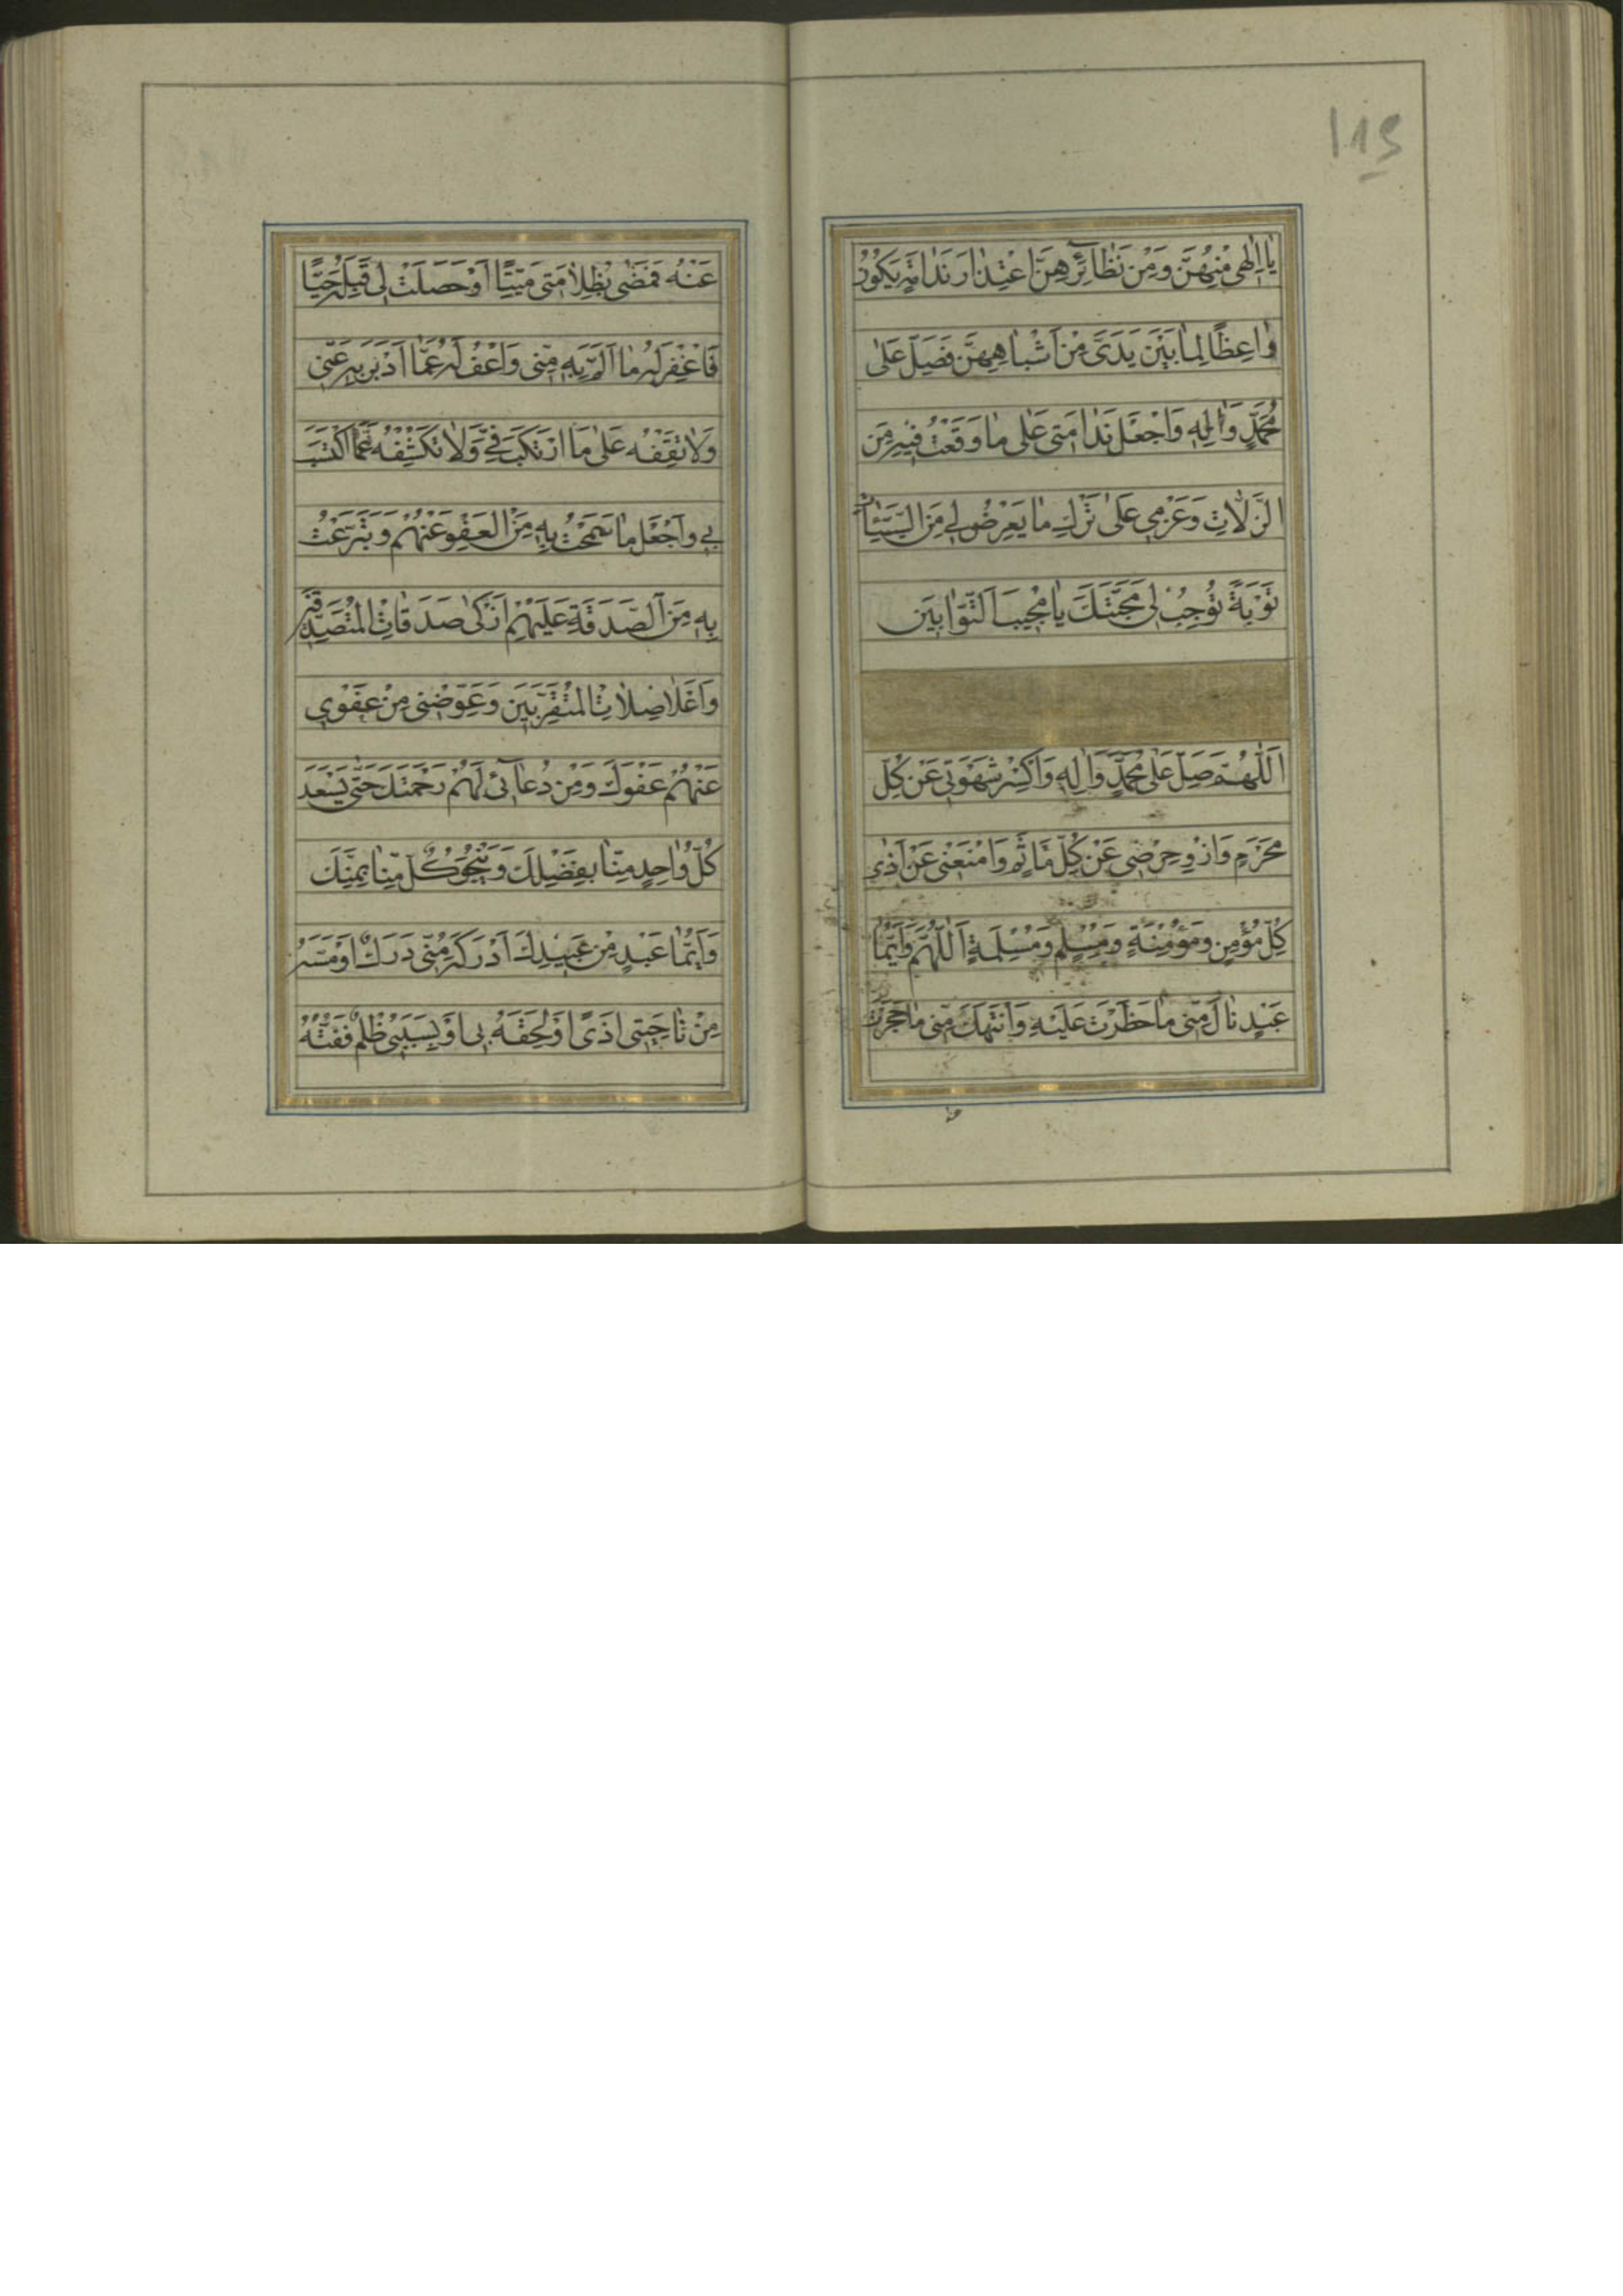 115
يٰا اِلٰهى مِنْهُنَّ وَمِنْ نَظٰائِرِهِنَّ اعْتِذٰارَ نَدٰامَةٍ يَكُونُ
وٰاعِظًا لِمٰا بَيْنَ يَدَىَّ مِنْ اَشْبٰاهِهِنَّ فَصَلِّ عَلٰى
مُحَمَّدٍ وَاٰلِهِ وَاجْعَلْ نَدٰامَتى عَلٰى مٰا وَقَعْتُ فيهِ مِنَ
الزَّلّاٰتِ وَعَزْمى عَلٰى تَرْكِ مٰا يَعْرِضُ لى مِنَ السَّيِّئٰاتِ
تَوْبَةً تُوجِبُ لى مَحَبَّتَكَ يٰا مُحِبَّ التَّوّٰابينَ
اَللّٰهُمَّ صَلِّ عَلٰى مُحَمَّدٍ وَاٰلِهِ وَاكْسِرْ شَهْوَتى عَنْ كُلِّ
مَحْرَمٍ وَازْوِ حِرْصى عَنْ كُلِّ مَأْثَمٍ وَامْنَعْنى عَنْ اَذٰى
كُلِّ مُؤْمِنٍ وَمُؤْمِنَةٍ وَمُسْلِمٍ وَمُسْلِمَةٍ اَللّٰهُمَّ وَاَيُّمٰا
عَبْدٍ نٰالَ مِنّى مٰا حَظَرْتَ عَلَيْهِ وَانْتَهَكَ مِنّى مٰا حَجَرْتَ
عَنْهُ
عَنْهُ فَمَضٰى بِظُلاٰمَتى مَيِّتًا اَوْ حَصَلَتْ لى قِبَلَهُ حَيًّا
فَاغْفِرْ لَهُ مٰا اَلَمَّ بِهِ مِنّى وَاعْفُ لَهُ عَمّٰا اَدْبَرَ بِهِ عَنّى
وَلاٰ تَقِفْهُ عَلٰى مَا ارْتَكَبَ فِىَّ وَلاٰ تَكْشِفْهُ عَمَّا اكْتَسَبَ
بى وَاجْعَلْ مٰا سَمَحْتُ بِهِ مِنَ الْعَفْوِ عَنْهُمْ وَتَبَرَّعْتُ
بِهِ مِنَ الصَّدَقَةِ عَلَيْهِمْ اَزْكٰى صَدَقٰاتِ الْمُتَصَدِّقينَ
وَاَعْلاٰ صِلاٰتِ الْمُتَقَرِّبينَ وَعَوِّضْنى مِنْ عَفْوى
عَنْهُمْ عَفْوَكَ وَمِنْ دُعٰائى لَهُمْ رَحْمَتَكَ حَتّٰى يَسْعَدَ
كُلُّ وٰاحِدٍ مِنّٰا بِفَضْلِكَ وَيَنْجُوَ كُلٌّ مِنّٰا بِمَنِّكَ
وَاَيُّمٰا عَبْدٍ مِنْ عَبيدِكَ اَدْرَكَهُ مِنّى دَرَكٌ اَوْ مَسَّهُ
مِنْ نٰاحِيَتى اَذًى اَوْ لَحِقَهُ بى اَوْ بِسَبَبى ظُلْمٌ فَفُتُّهُ